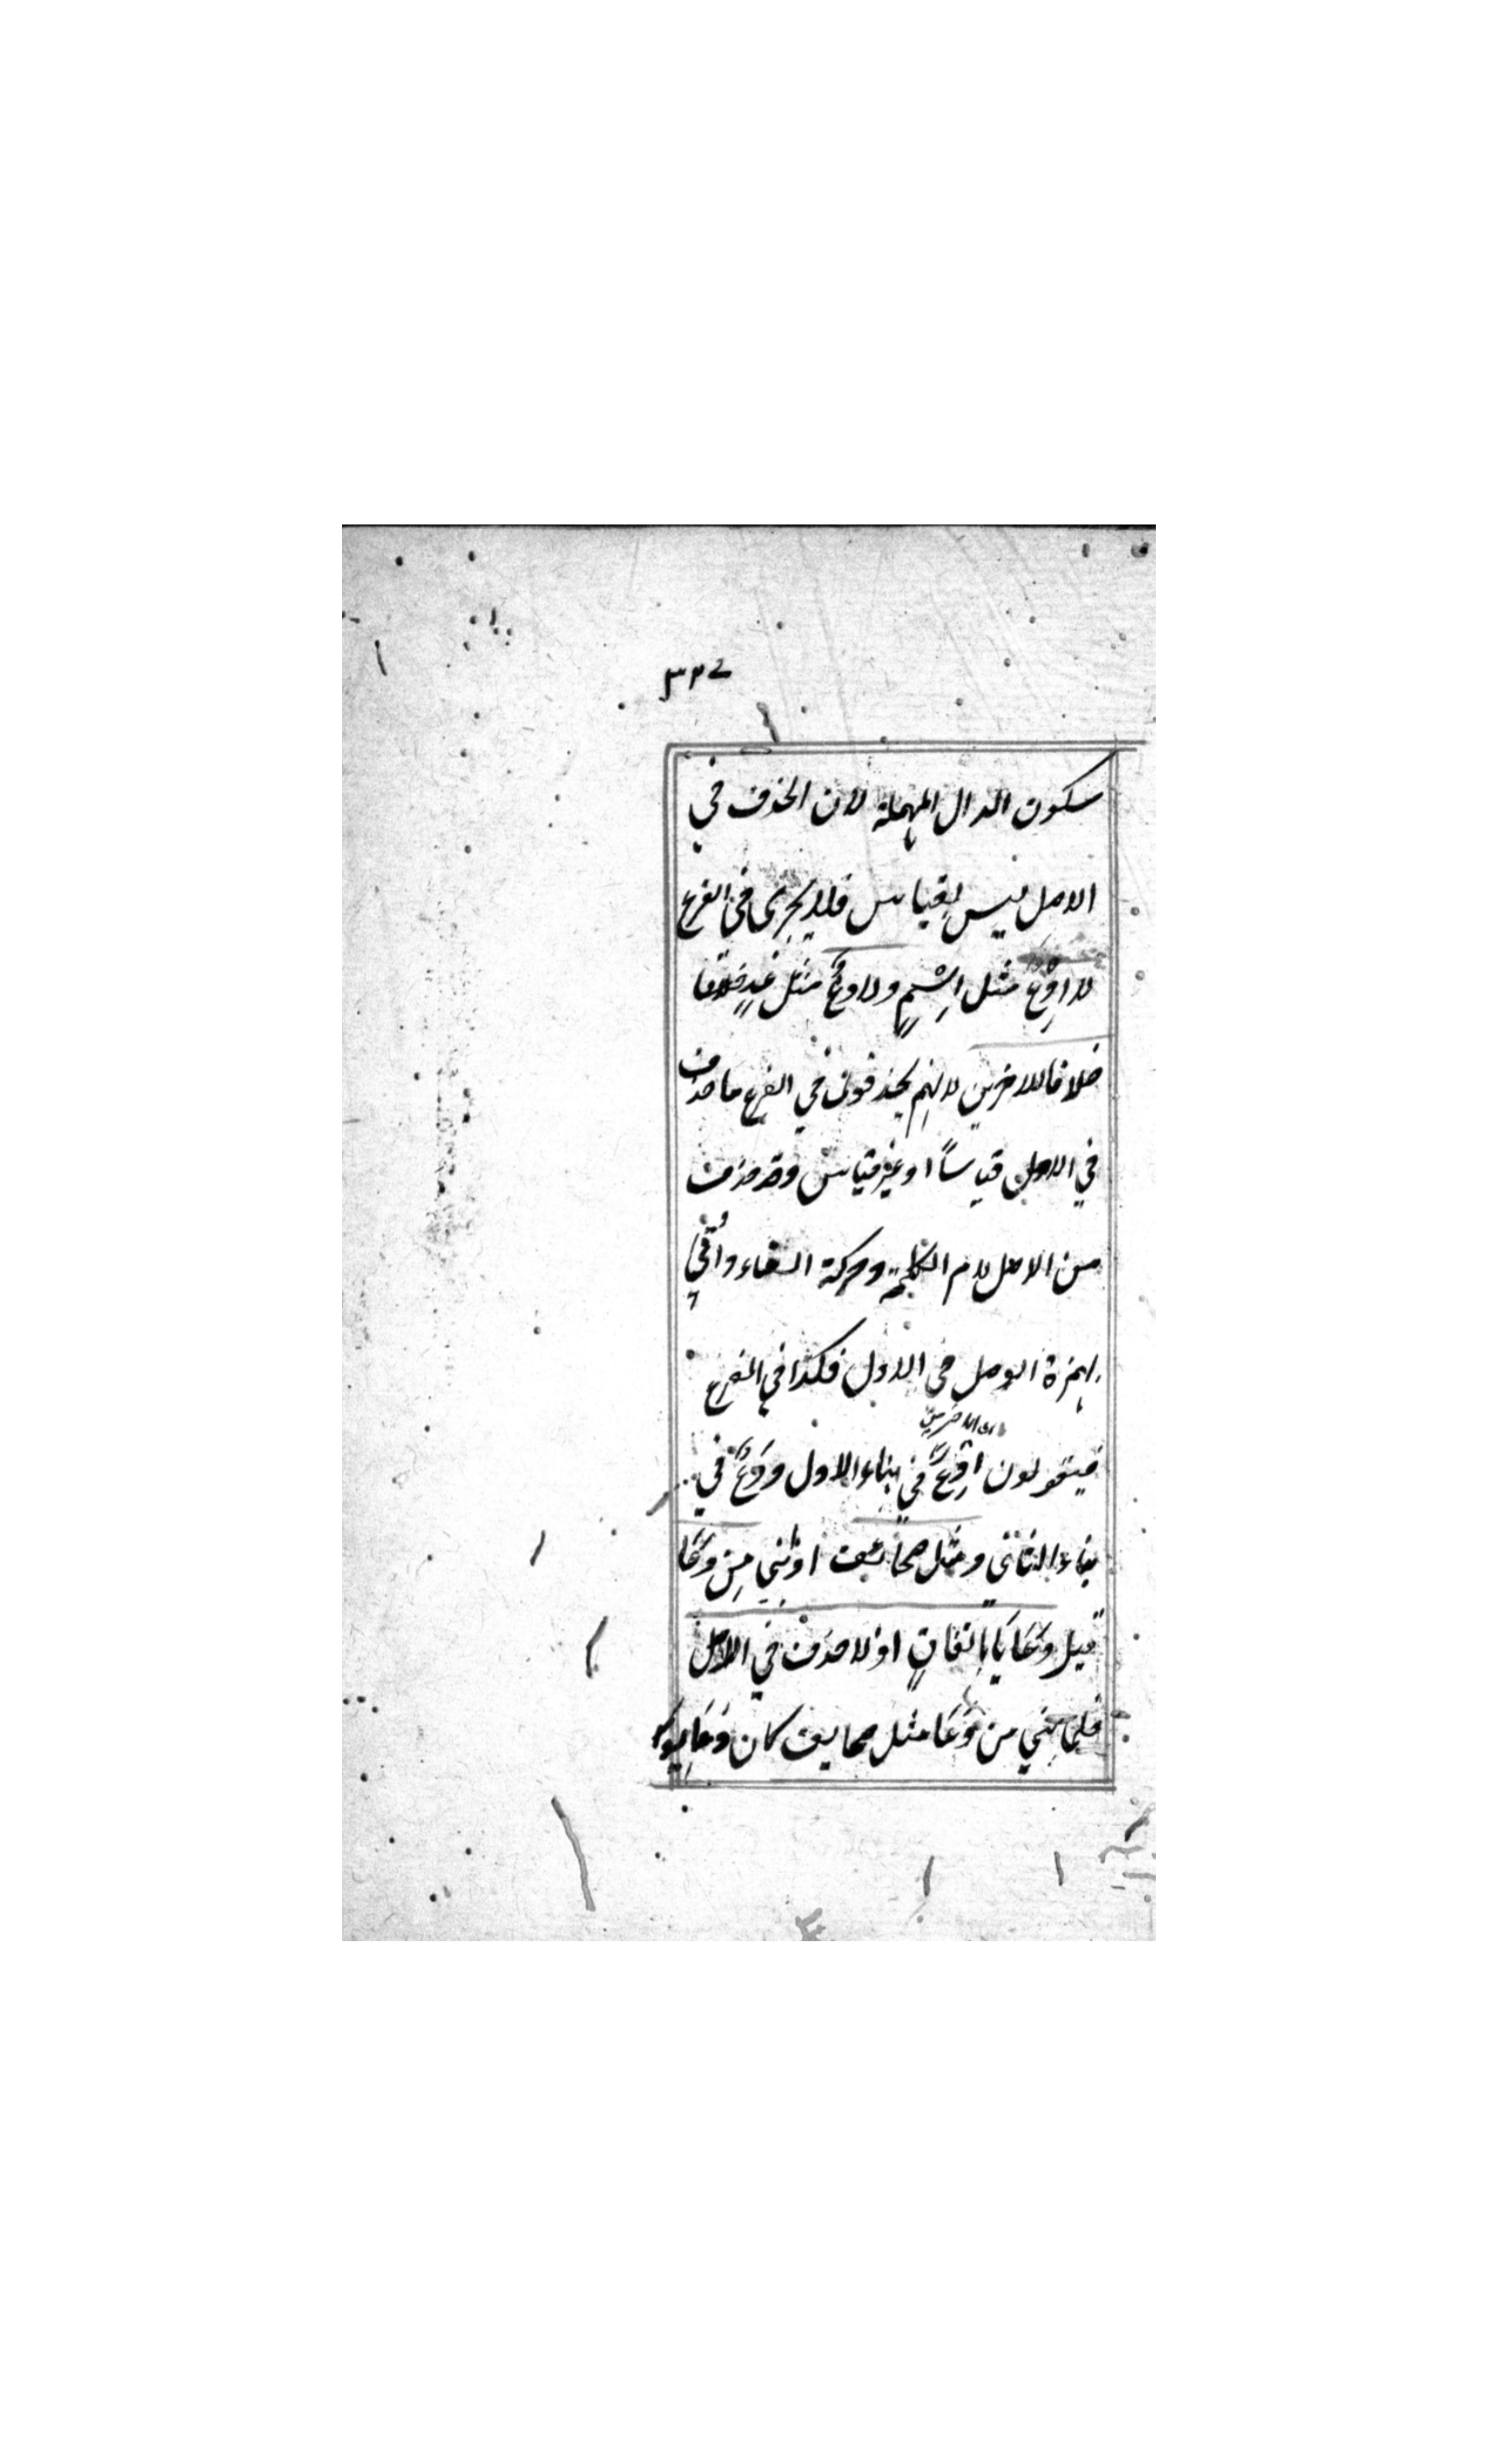 ٣٣٤
سكون الدال المهملة لان الحذف في
الاصل ليس بقياس فلا يجرى في الفرع
لا اِدْعٌ مثل اِسْمٍ ولا دعٌ مثل غدٍ
خلافا للاخرين لانهم يحذفون في الفرع ما حذف
في الاصل قياساً او غير قياس وقد حذف
من الاصل لام الكلمة وحركة الفاء واُتي
بهمزة الوصل في الاول فكذا في الفرع
اى الاخرين
فيقولون اِدْعٌ في بناء الاول ودَعٌ في
بناء الثاني ومثل صحائف اذا بُني مِن دَعَا
قيل دَعَايَا بِاتفاقٍ اذ لا حذف في الاصل
فلما بني من دَعَا مثل صحايف كان دَعَايِوُ